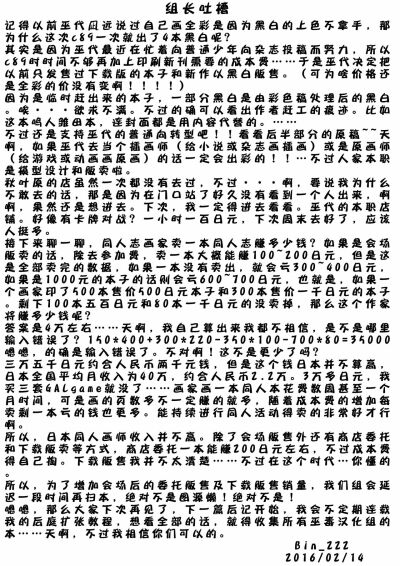 组长吐槽
记得以前巫代凪边说过自己画全彩是因为黑白的上色不拿手，那
为什么这次c89一次就出了4本黑白呢？
其实是因为巫代最近在忙着向普通少年向杂志投稿而努力，所以
c89时时间不够再加上印刷新刊需要的成本费……于是巫代决定把
以前只发售过下载版的本子和新作以黑白贩售。（可为啥价格还
是全彩的价没有变啊！！！！）
因为是临时赶出来的本子，一部分黑白是由彩色稿处理后的黑白
。唉・・・欲求不满。不过的确可以看出作者赶工的痕迹。比如
这本鸣人雏田本，连封面都是用内容代替的。……
不过还是支持巫代的普通向转型吧！！看看后半部分的原稿~~天
啊，如果巫代去当个插画师（给小说或杂志画插画）或是原画师
（给游戏或动画画原画）的话一定会出彩的！！…不过人家本职
是模型设计和贩卖啦。
秋叶原的店虽然一次都没有去过，不过・・・啊，要说我为什么
不敢去的话，那是因为在门口站了好久没有看到一个人出来，啊
啊，果然还是想进去。下次，我一定得进去看看。巫代的本职店
铺。好像有卡牌对战？一小时一百日元，下次周末去好了，应该
人挺多。
接下来聊一聊，同人志画家卖一本同人志赚多少钱？如果是会场
贩卖的话，除去参加费，卖一本大概能赚100~200日元，但是这
是全部卖完的数据，如果一本没有卖出，就会亏300~400日元，
如果是1000元的本子的话则会亏600~700日元，也就是，如果一
个画家印了500本售价500日元本子和300本售价一千日元的本子
。剩下100本五百日元和80本一千日元的没卖掉，那么这个作家
将赚多少钱呢？
答案是4万左右……天啊，我自己算出来我都不相信，是不是哪里
输入错误了？150*400+300*220-350*100-700*80=35000
嗯嗯，的确是输入错误了。不对啊！这不是更少了吗？
三万五千日元约合人民币两千元钱，但是这个钱日本并不算赢，
日本全国平均月收入为40万，约合人民币2.2万。3万多日元，我
买三套GALgame就没了……画家画一本同人本花费数周甚至一个
月时间，可是画的页数多不一定赚的就多，随着成本费的增加每
卖剩一本亏的钱也更多。能持续进行同人活动得卖的非常好才行
啊。
所以，日本同人画师收入并不高。除了会场版售外还有商店委托
和下载贩卖等方式，商店委托一本能赚200日元左右，不过成本费
得自己掏。下载版售我并不太清楚……不过在这个时代…你懂的
。
所以，为了增加会场后的委托版售及下载版售销量，我们组会延
迟一段时间再扫本，绝对不是图源懒！绝对不是！
嗯嗯，那么大家下次再见了，下一篇后记开始，我会不定期连载
我的后庭扩张教程，想看全部的话，就得收集所有巫毒汉化组的
本……天啊，不过我相信你们可以的。
Bin_222
2016/02/14